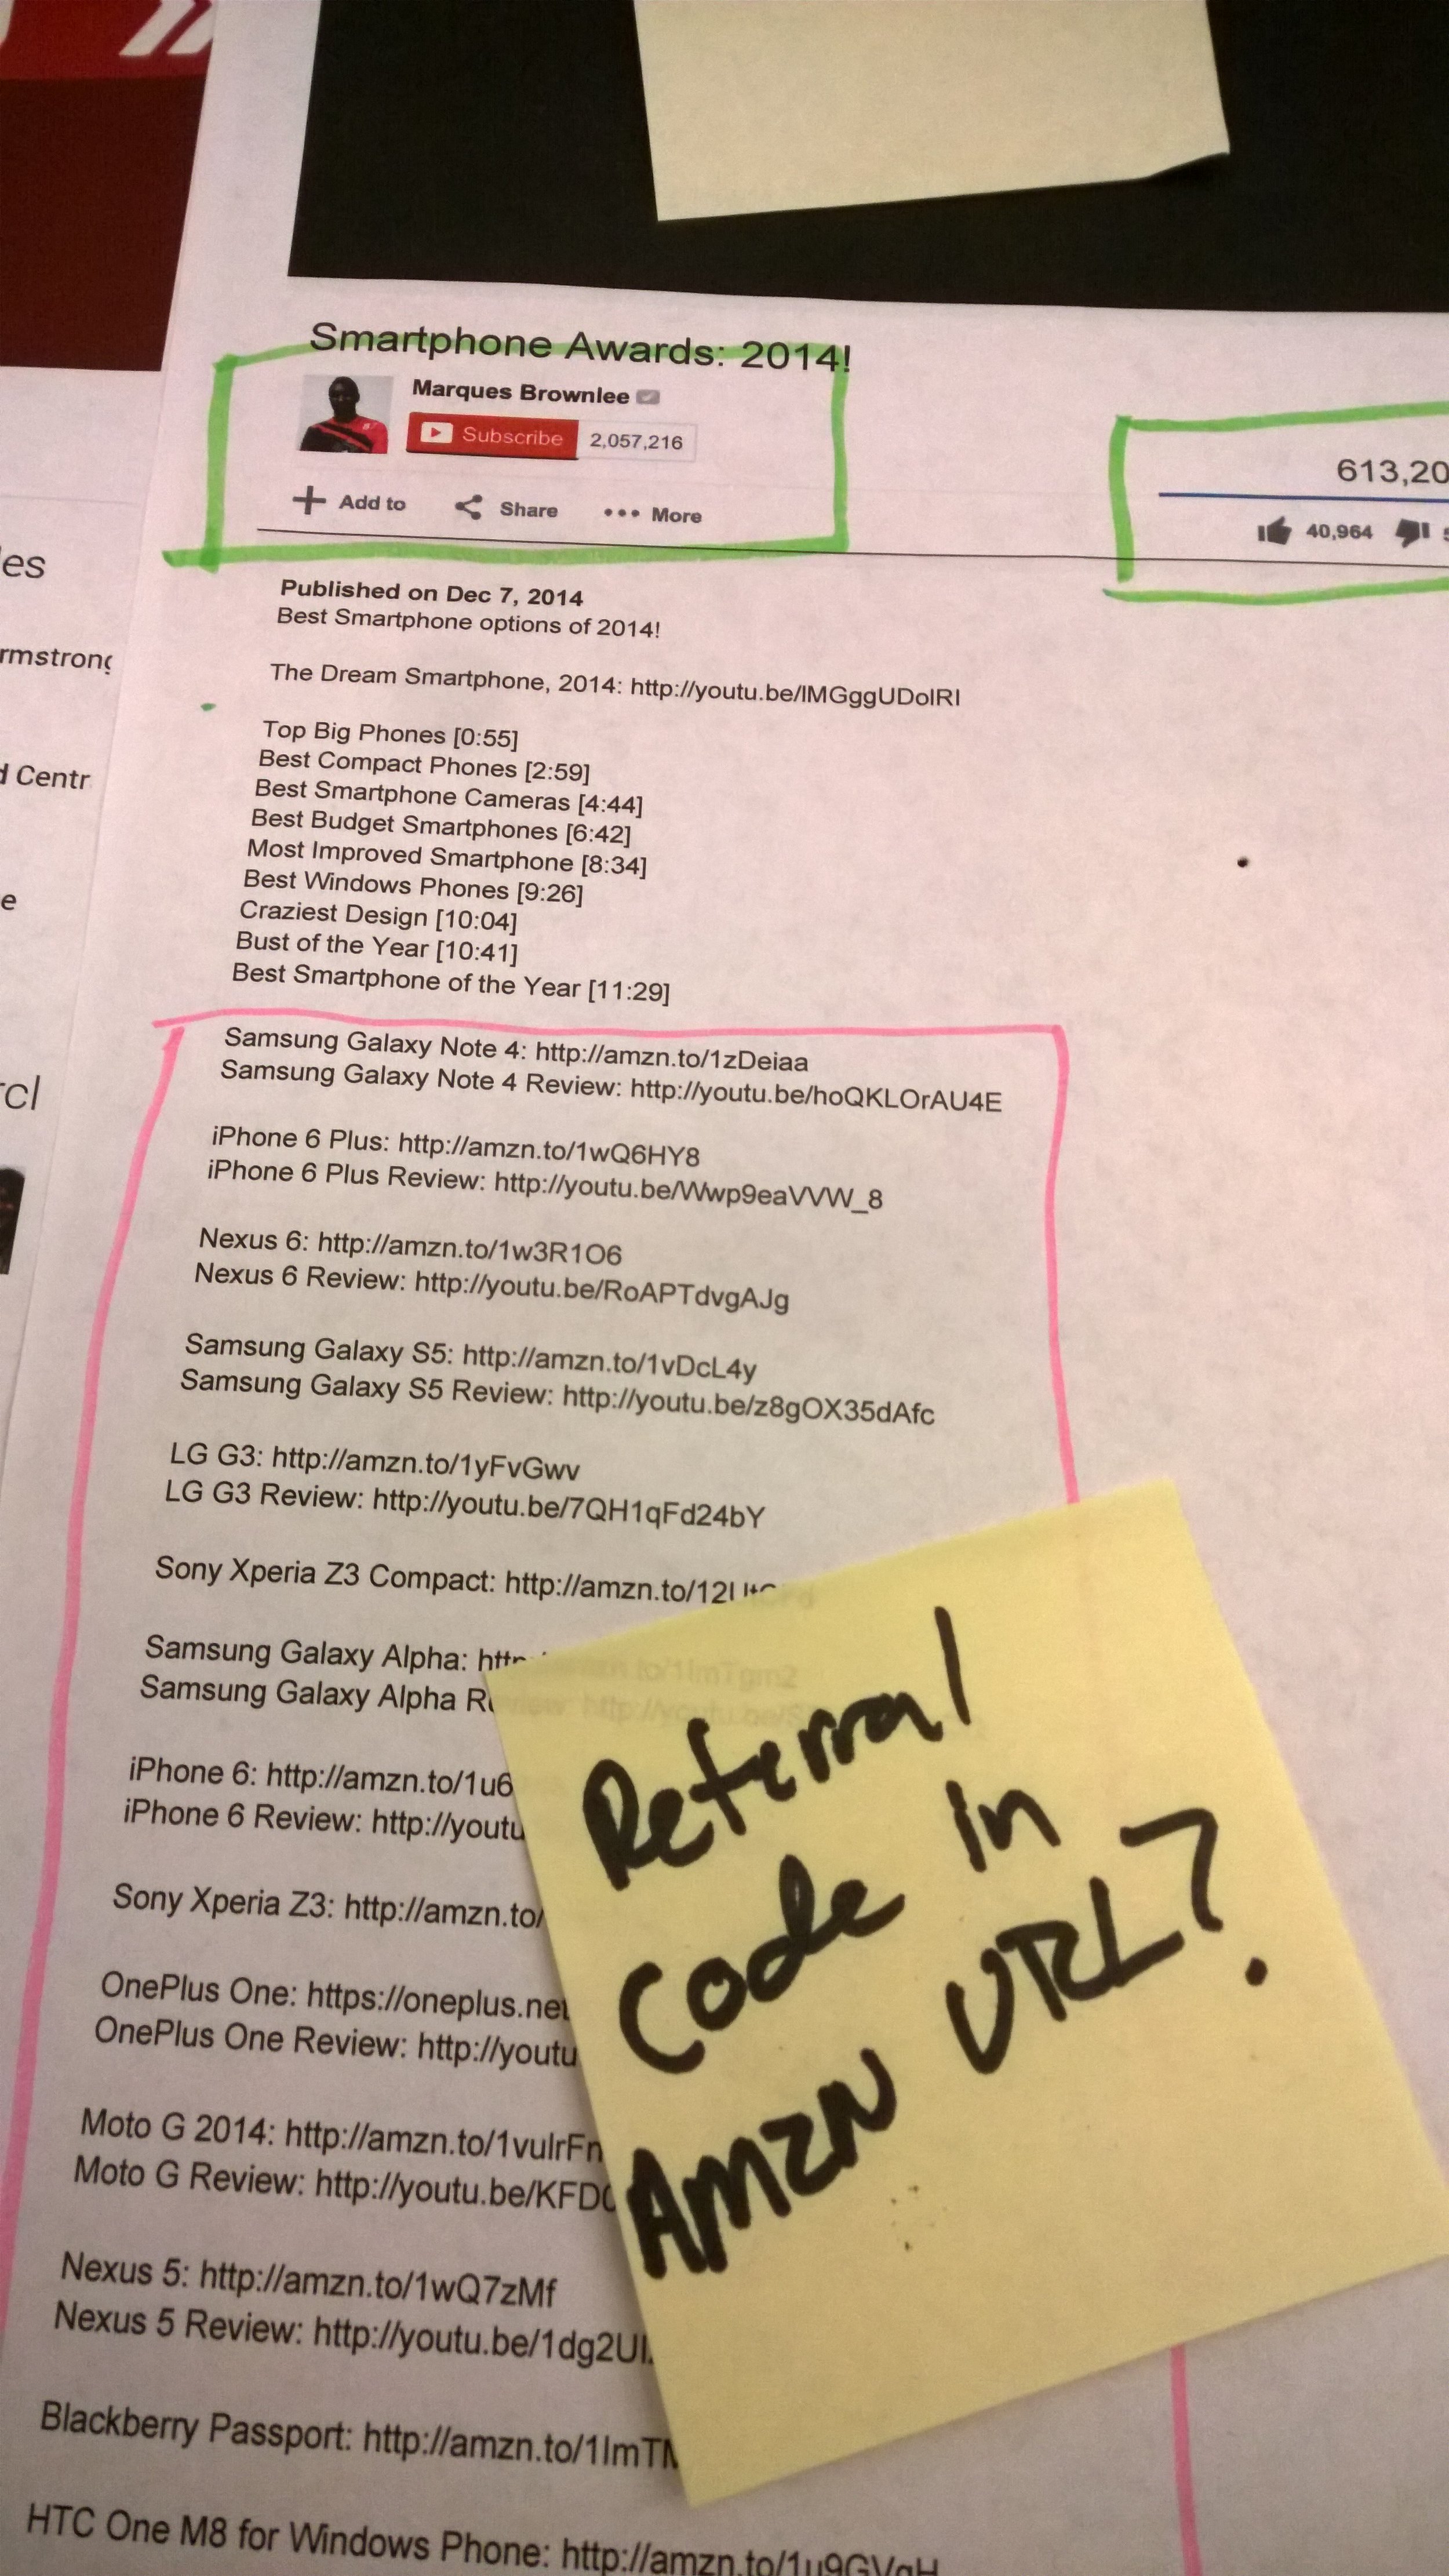 Smartphone Awards: 2014!
Marques Brownlee
Subscribe 2,057,216
Add to Share More
613,20
40,964
Published on Dec 7, 2014
Best Smartphone options of 2014!
The Dream Smartphone, 2014: http://youtu.be/IMGggUDoIRI
Top Big Phones [0:55]
Best Compact Phones [2:59]
Best Smartphone Cameras [4:44]
Best Budget Smartphones [6:42]
Most Improved Smartphone [8:34]
Best Windows Phones [9:26]
Craziest Design [10:04]
Bust of the Year [10:41]
Best Smartphone of the Year [11:29]
Samsung Galaxy Note 4: http://amzn.to/1zDeiaa
Samsung Galaxy Note 4 Review: http://youtu.be/hoQKLOrAU4E
iPhone 6 Plus: http://amzn.to/1wQ6HY8
iPhone 6 Plus Review: http://youtu.be/Wwp9eaVVW_8
Nexus 6: http://amzn.to/1w3R1O6
Nexus 6 Review: http://youtu.be/RoAPTdvgAJg
Samsung Galaxy S5: http://amzn.to/1vDcL4y
Samsung Galaxy S5 Review: http://youtu.be/z8gOX35dAfc
LG G3: http://amzn.to/1yFvGwv
LG G3 Review: http://youtu.be/7QH1qFd24bY
Sony Xperia Z3 Compact: http://amzn.to/12
Samsung Galaxy Alpha:
Samsung Galaxy Alpha
iPhone 6: http://amzn.to/1u6
iPhone 6 Review: http://youtu
Sony Xperia Z3: http://amzn.to/
OnePlus One: https://oneplus.net
OnePlus One Review: http://youtu
Moto G 2014: http://amzn.to/1vulrFn
Moto G Review: http://youtu.be/KFD
Nexus 5: http://amzn.to/1wQ7zMf
Nexus 5 Review: http://youtu.be/1dg2U
Blackberry Passport: http://amzn.to/1ImT
HTC One M8 for Windows Phone: http://amzn.to/1u9GVgH
Referral
Code in
AMZN URL?
es
rmstrong
d Centr
e
rcl